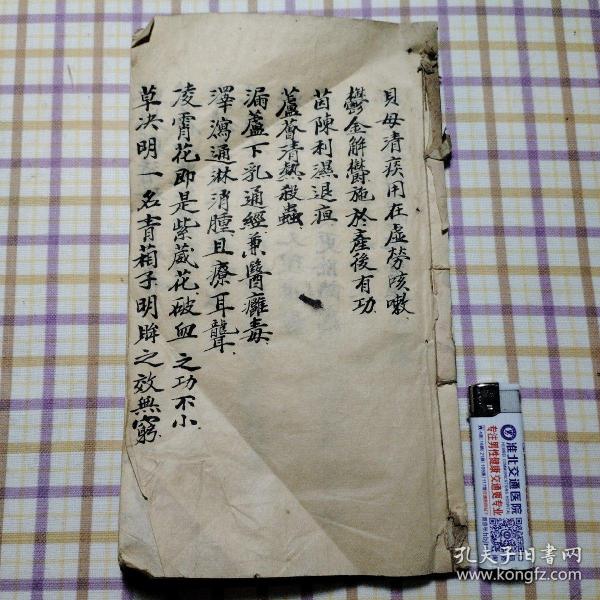 貝母清痰用在虛勞咳嗽
鬱金解鬱施於產後有功
茵陳利濕退疸
蘆薈清熱殺蟲
漏蘆下乳通經兼醫癰毒
澤瀉通淋消腫且療耳聾
凌霄花即是紫葳花破血之功不小
草决明一名青葙子明眸之效無窮
淮北交通医院
专注男性健康 交通更专业
孔夫子旧书网
www.kongfz.com